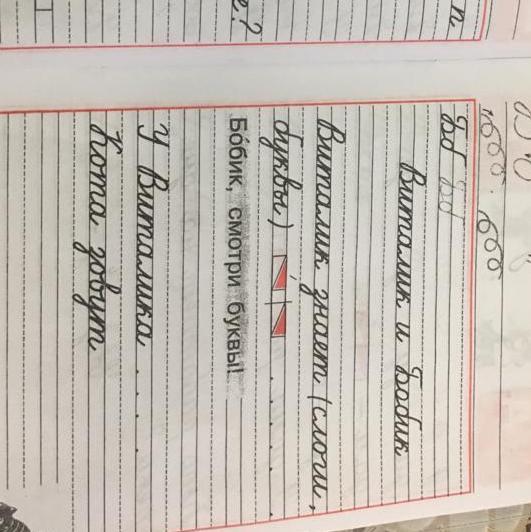 Бб Бб
Виталик и Бобик
Виталик знает (слоги,
буквы) . . . . .
Бо́бик, смотри буквы!
У Виталика . . . .
Кота зовут